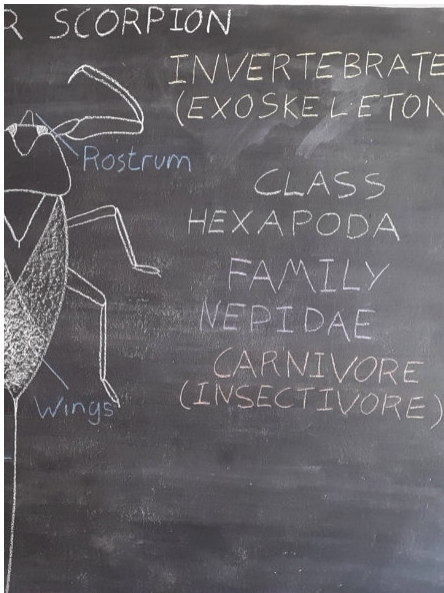 R SCORPION
INVERTEBRATE
(EXOSKELETON
Rostrum
CLASS
HEXAPODA
FAMILY
NEPIDAE
CARNIVORE
(INSECTIVORE)
Wings